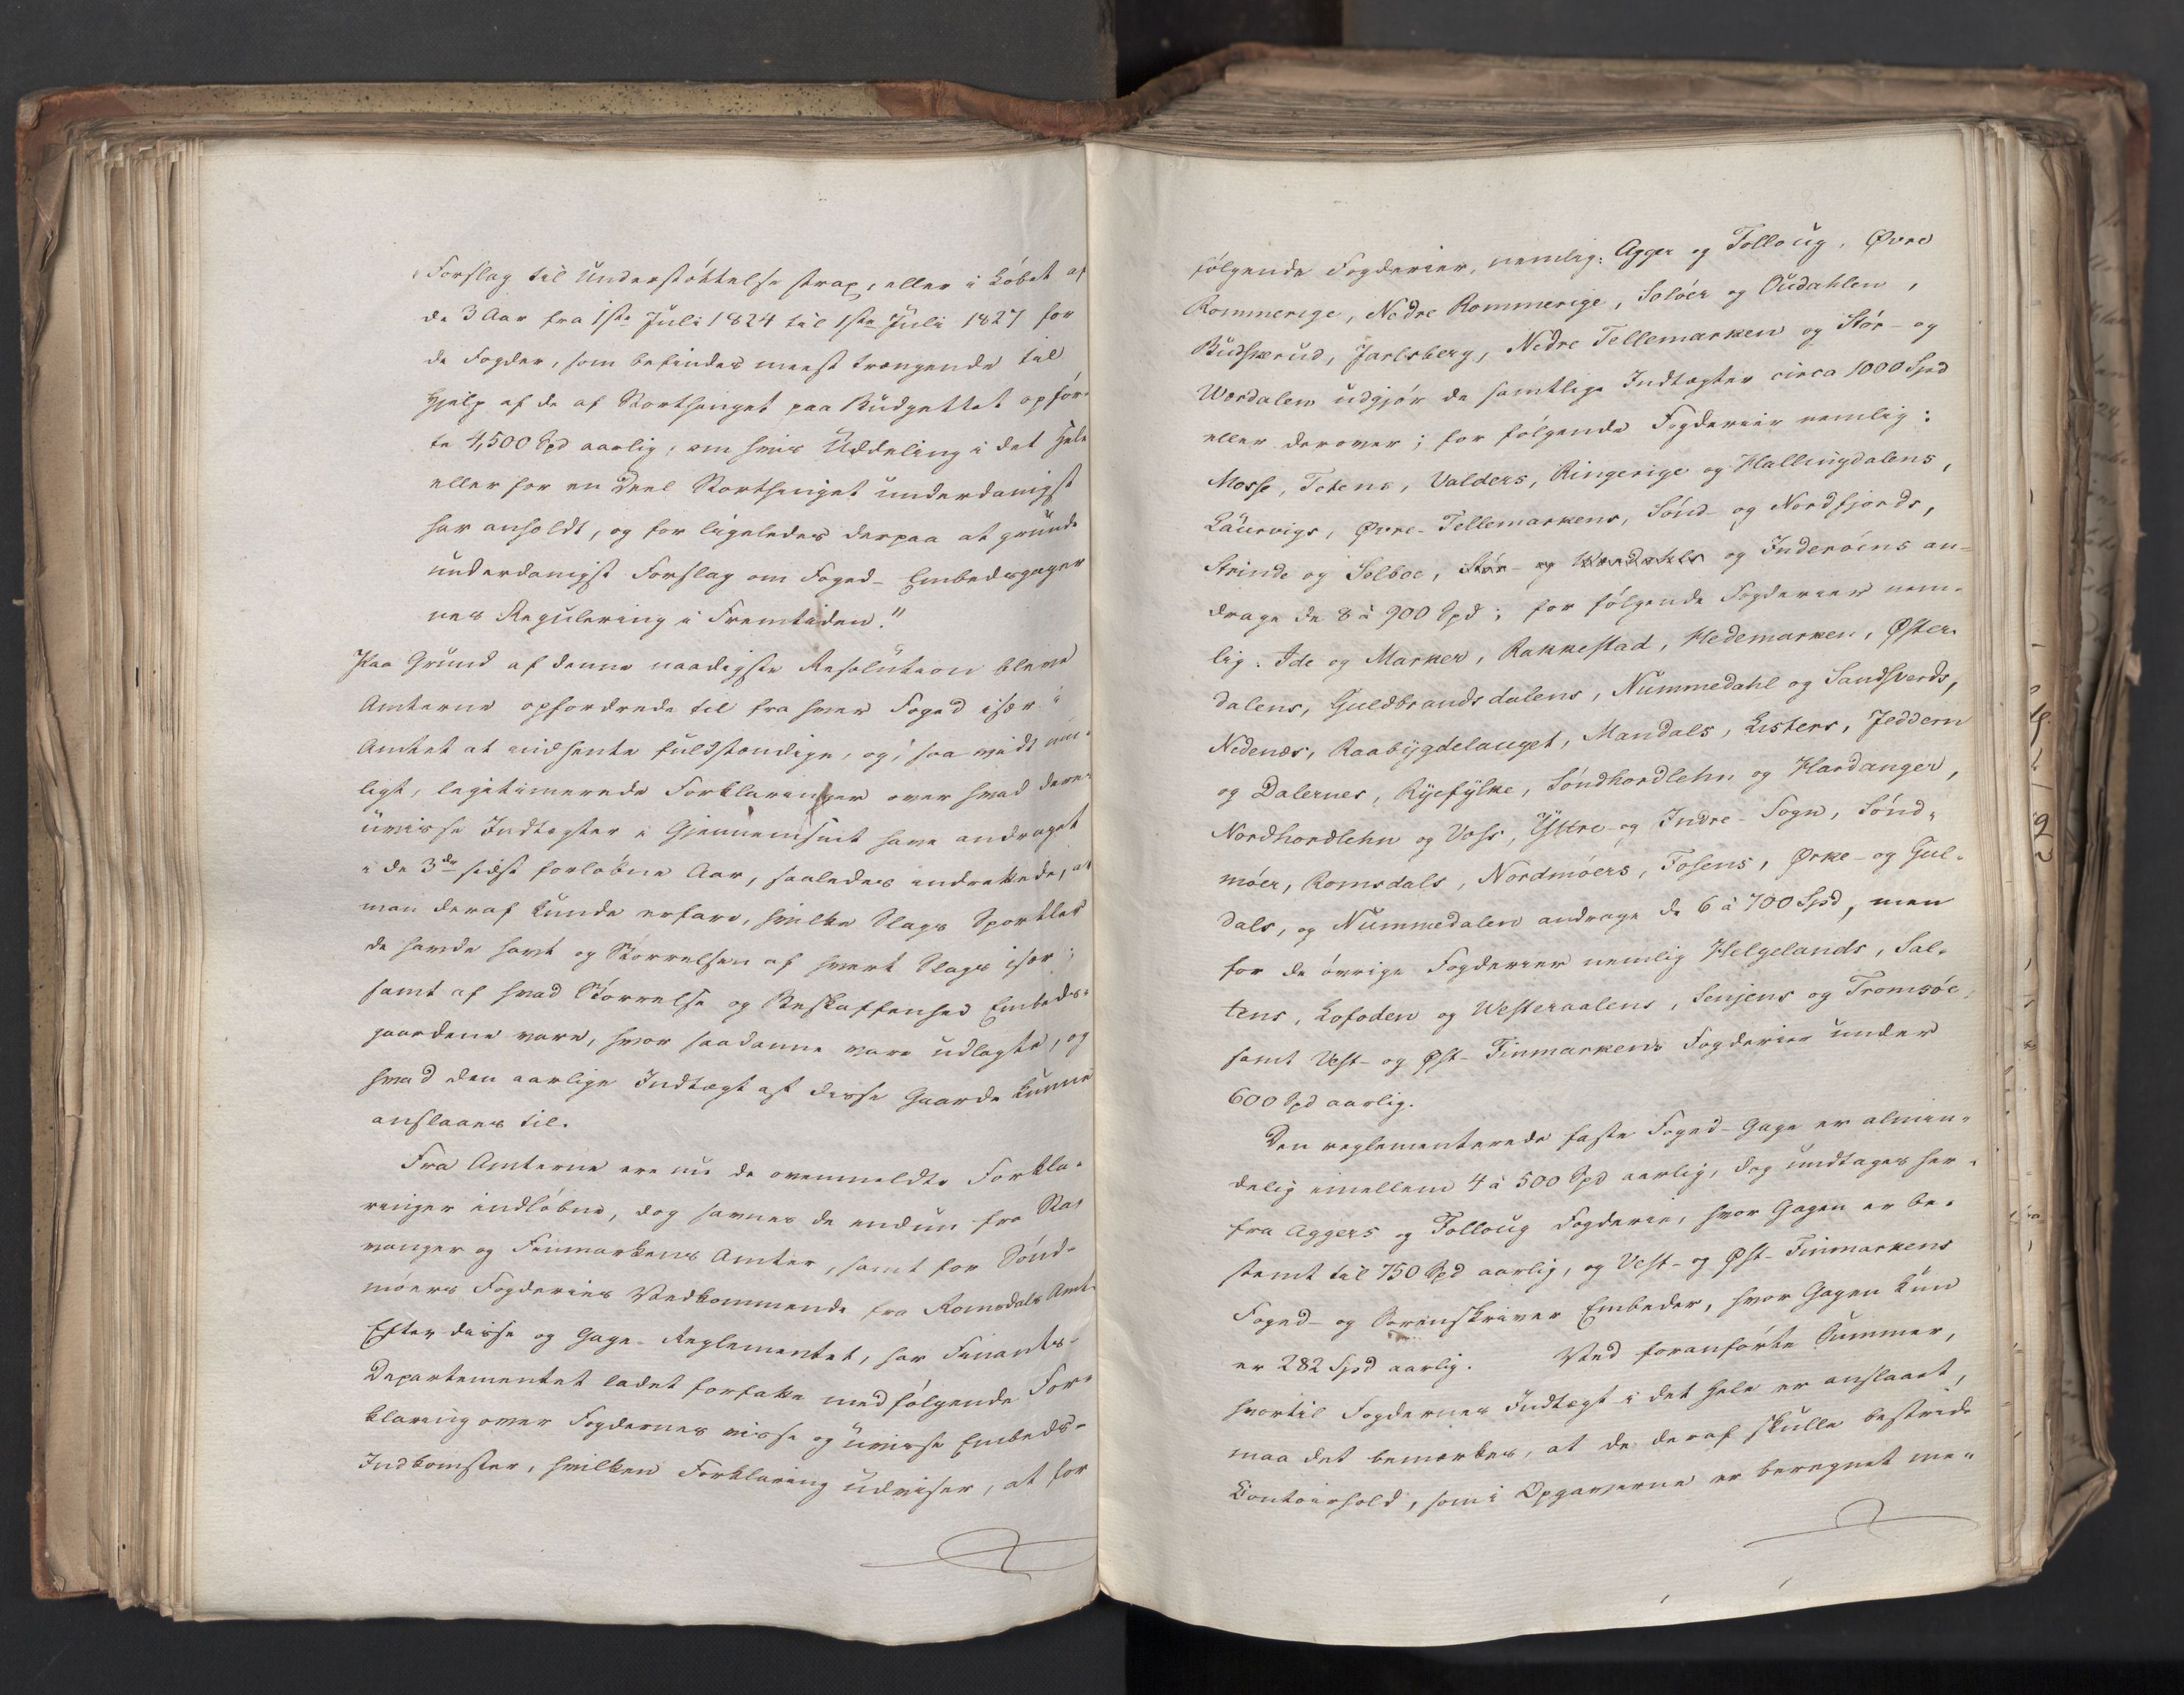 Forslag til Understøttelse strax, eller i Løbet af
de 3 Aar fra 1ste Juli 1824 til 1ste Juli 1827 for
de Fogder, som befindes meest trængende til
Hjelp af de af Storthinget paa Budgettet opfør-
te 4,500 Spd aarlig, om hvis Uddeling i det Hele
eller for en Deel Storthinget underdanigst
har anholdt, og for ligeledes derpaa at grunde
underdanigst Forslag om Foged-Embedsgager
nes Regulering i Fremtiden."
Paa Grund af denne naadigste Resolution bleve
Amterne opfordrede til fra hver Foged især i
Amtet at indhente fuldstændige, og, saavidt mu-
ligt, legitimerede Forklaringer over hvad deres
uvisse Indtægter i Gjennemsnit have andraget
i de 3de sidst forløbne Aar, saaledes indrettede, at
man deraf kunde erfare, hvilke Slags Sportler
de havde havt og Størrelsen af hvert Slags især;
samt af hvad Størrelse og Beskaffenhed Embeds-
gaardene vare, hvor saadanne vare udlagte, og
hvad den aarlige Indtægt af disse Gaarde kunne
anslaaes til.
Fra Amterne ere nu de ovenmeldte Forkla-
ringer indløbne, dog savnes de endnu fra Sta-
vanger og Finmarkens Amter, samt for Sønd-
møers Fogderies Vedkommende fra Romsdals Amt.
Efter disse og Gage-Reglementet, har Finants-
Departementet ladet forfatte medfølgende For-
klaring over Fogdernes visse og uvisse Embeds-
Indkomster, hvilken Forklaring udviser, at for
følgende Fogderier, nemlig: Agger og Folloug, Øvre
Rommerige, Nedre Rommerige, Soløer og Oudahlen,
Budskerud, Jarlsberg, Nedre Tellemarken og Stør- og
Werdalen udgjør de samtlige Indtægter circa 1000 Spd
eller derover; for følgende Fogderier nemlig:
Mosse, Totens, Valders, Ringerige og Hallingdalens,
Laurvigs, Øvre-Tellemarkens, Sønd- og Nordfjords,
Strinde og Selboe, Stør- og Werdahls og Inderøens an-
drage de 8 à 900 Spd; for følgende Fogderier nem-
lig: Ide og Marker, Rakkestad, Hedemarken, Øster-
dalens, Guldbrandsdalens, Nummedahl og Sandsverds,
Nedenæs, Raabygdelauget, Mandals, Listers, Jeddern
og Dalernes, Ryefylke, Søndhordlehn og Hardanger,
Nordhordlehn og Voss, Yttre- og Indre-Sogn, Sønd-
møer, Romsdals, Nordmøers, Fosens, Ørke- og Gul-
dals, og Nummedalen andrage de 6 à 700 Spd, men
for de øvrige Fogderier nemlig Helgelands, Sal-
tens, Lofoden og Westeraalens, Senjens og Tromsøe,
samt Vest- og Øst-Finmarkens Fogderier under
600 Spd aarlig.
Den reglementerede faste Foged-Gage er almin-
delig imellem 4 à 500 Spd aarlig, dog undtages her-
fra Aggers og Folloug Fogderie, hvor Gagen er be-
stemt til 750 Spd aarlig, og Vest- og Øst-Finmarkens
Foged- og Sorenskriver Embeder, hvor Gagen kun
er 282 Spd aarlig. Ved foranførte Summer,
hvortil Fogdernes Indtægt i det Hele er anslaaet,
maa det bemærkes, at de deraf skulle bestride
Contoirhold, som i Opgaverne er beregnet me-